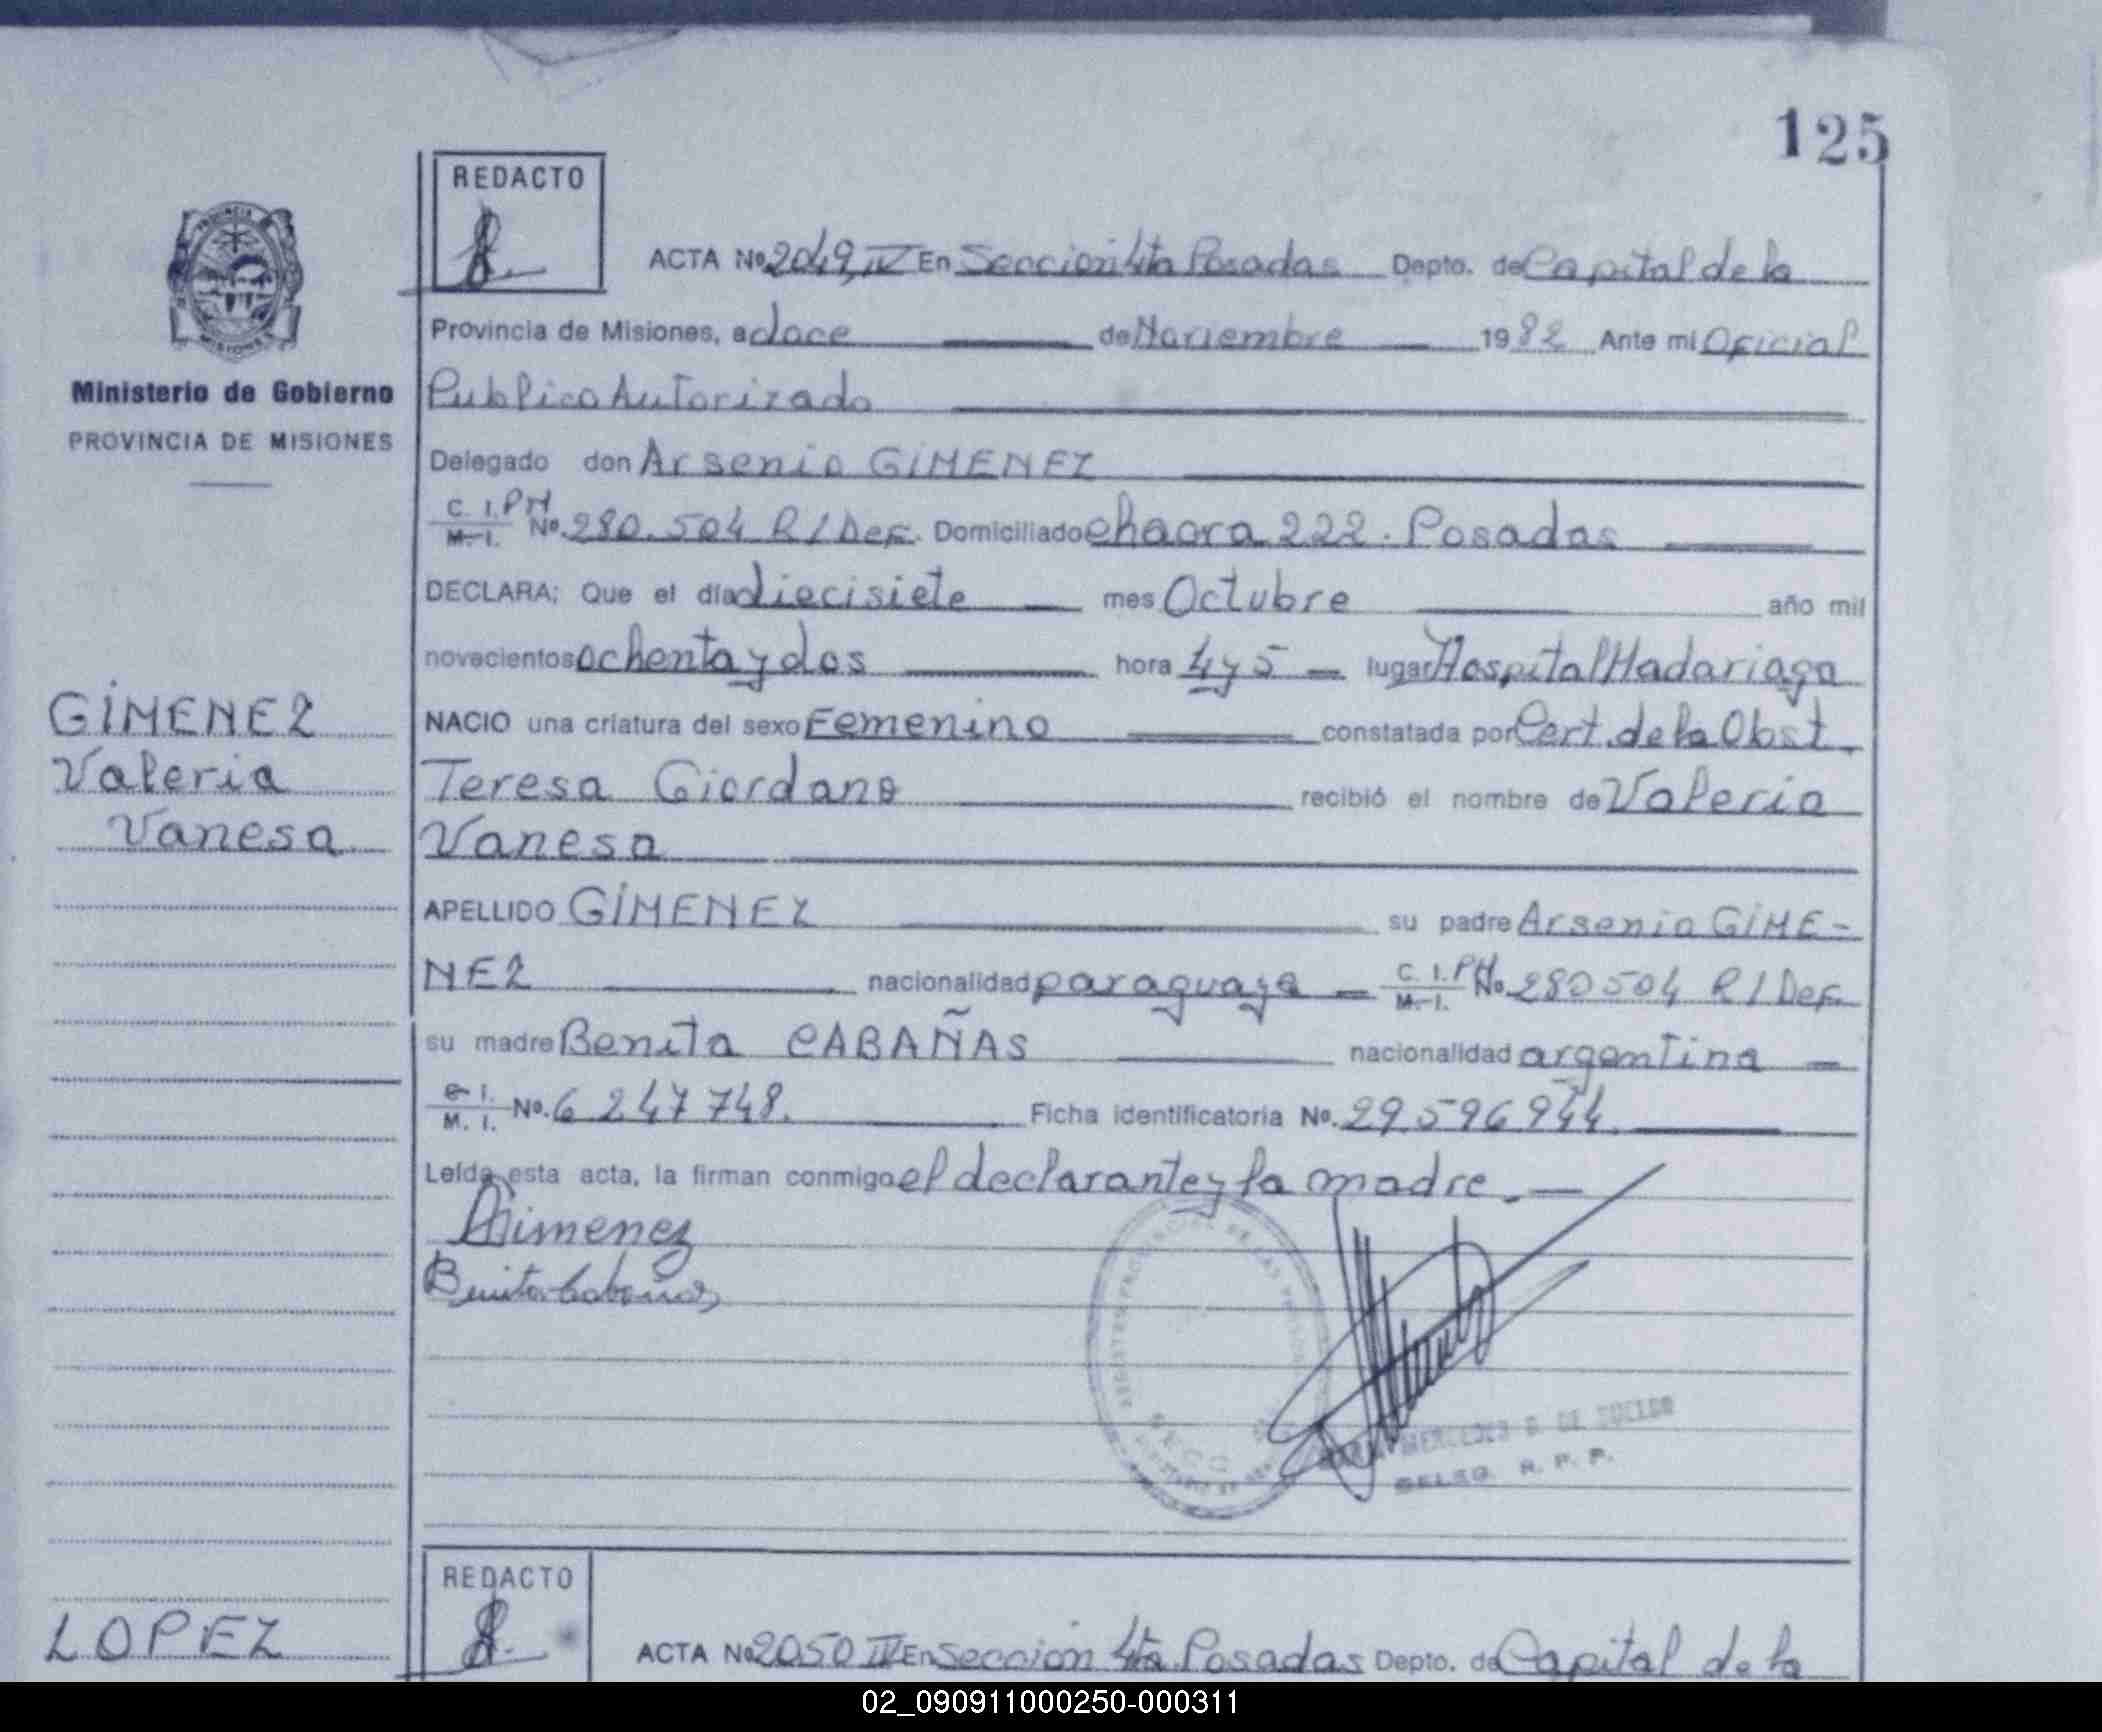 125
REDACTO
ACTA No 2049, IV En Seccion 4ta Posadas Depto. de Capital de la
Provincia de Misiones, a doce de Noviembre 1982 Ante mi Oficial
Publico Autorizado
Ministerio de Gobierno
PROVINCIA DE MISIONES
Delegado don Arsenio GIMENEZ
C. I. PH
M. I. No. 280.504 R/Def. Domiciliado chacra 222. Posadas
DECLARA: Que el día diecisiete mes Octubre año mil
novecientos ochenta y dos hora 4 y 5 lugar Hospital Madariaga
GIMENEZ
Valeria
Vanesa
NACIO una criatura del sexo Femenino constatada por Cert. de la Obst.
Teresa Giordano recibió el nombre de Valeria
Vanesa
APELLIDO GIMENEZ su padre Arsenio GIME-
NEZ nacionalidad paraguaya C. I. PH M. I. No. 280504 R/Def.
su madre Benita CABAÑAS nacionalidad argentina
C. I.
M. I. No. 6 247 748. Ficha identificatoria No. 29.596944.
Leída esta acta, la firman conmigo el declarante y la madre.
AGimenez
Benita Cabañas
MERCEDES DE
DELEG. R. P. P.
LOPEZ
REDACTO
ACTA No 2050 IV En Seccion 4ta Posadas Depto. de Capital de la
02_090911000250-000311